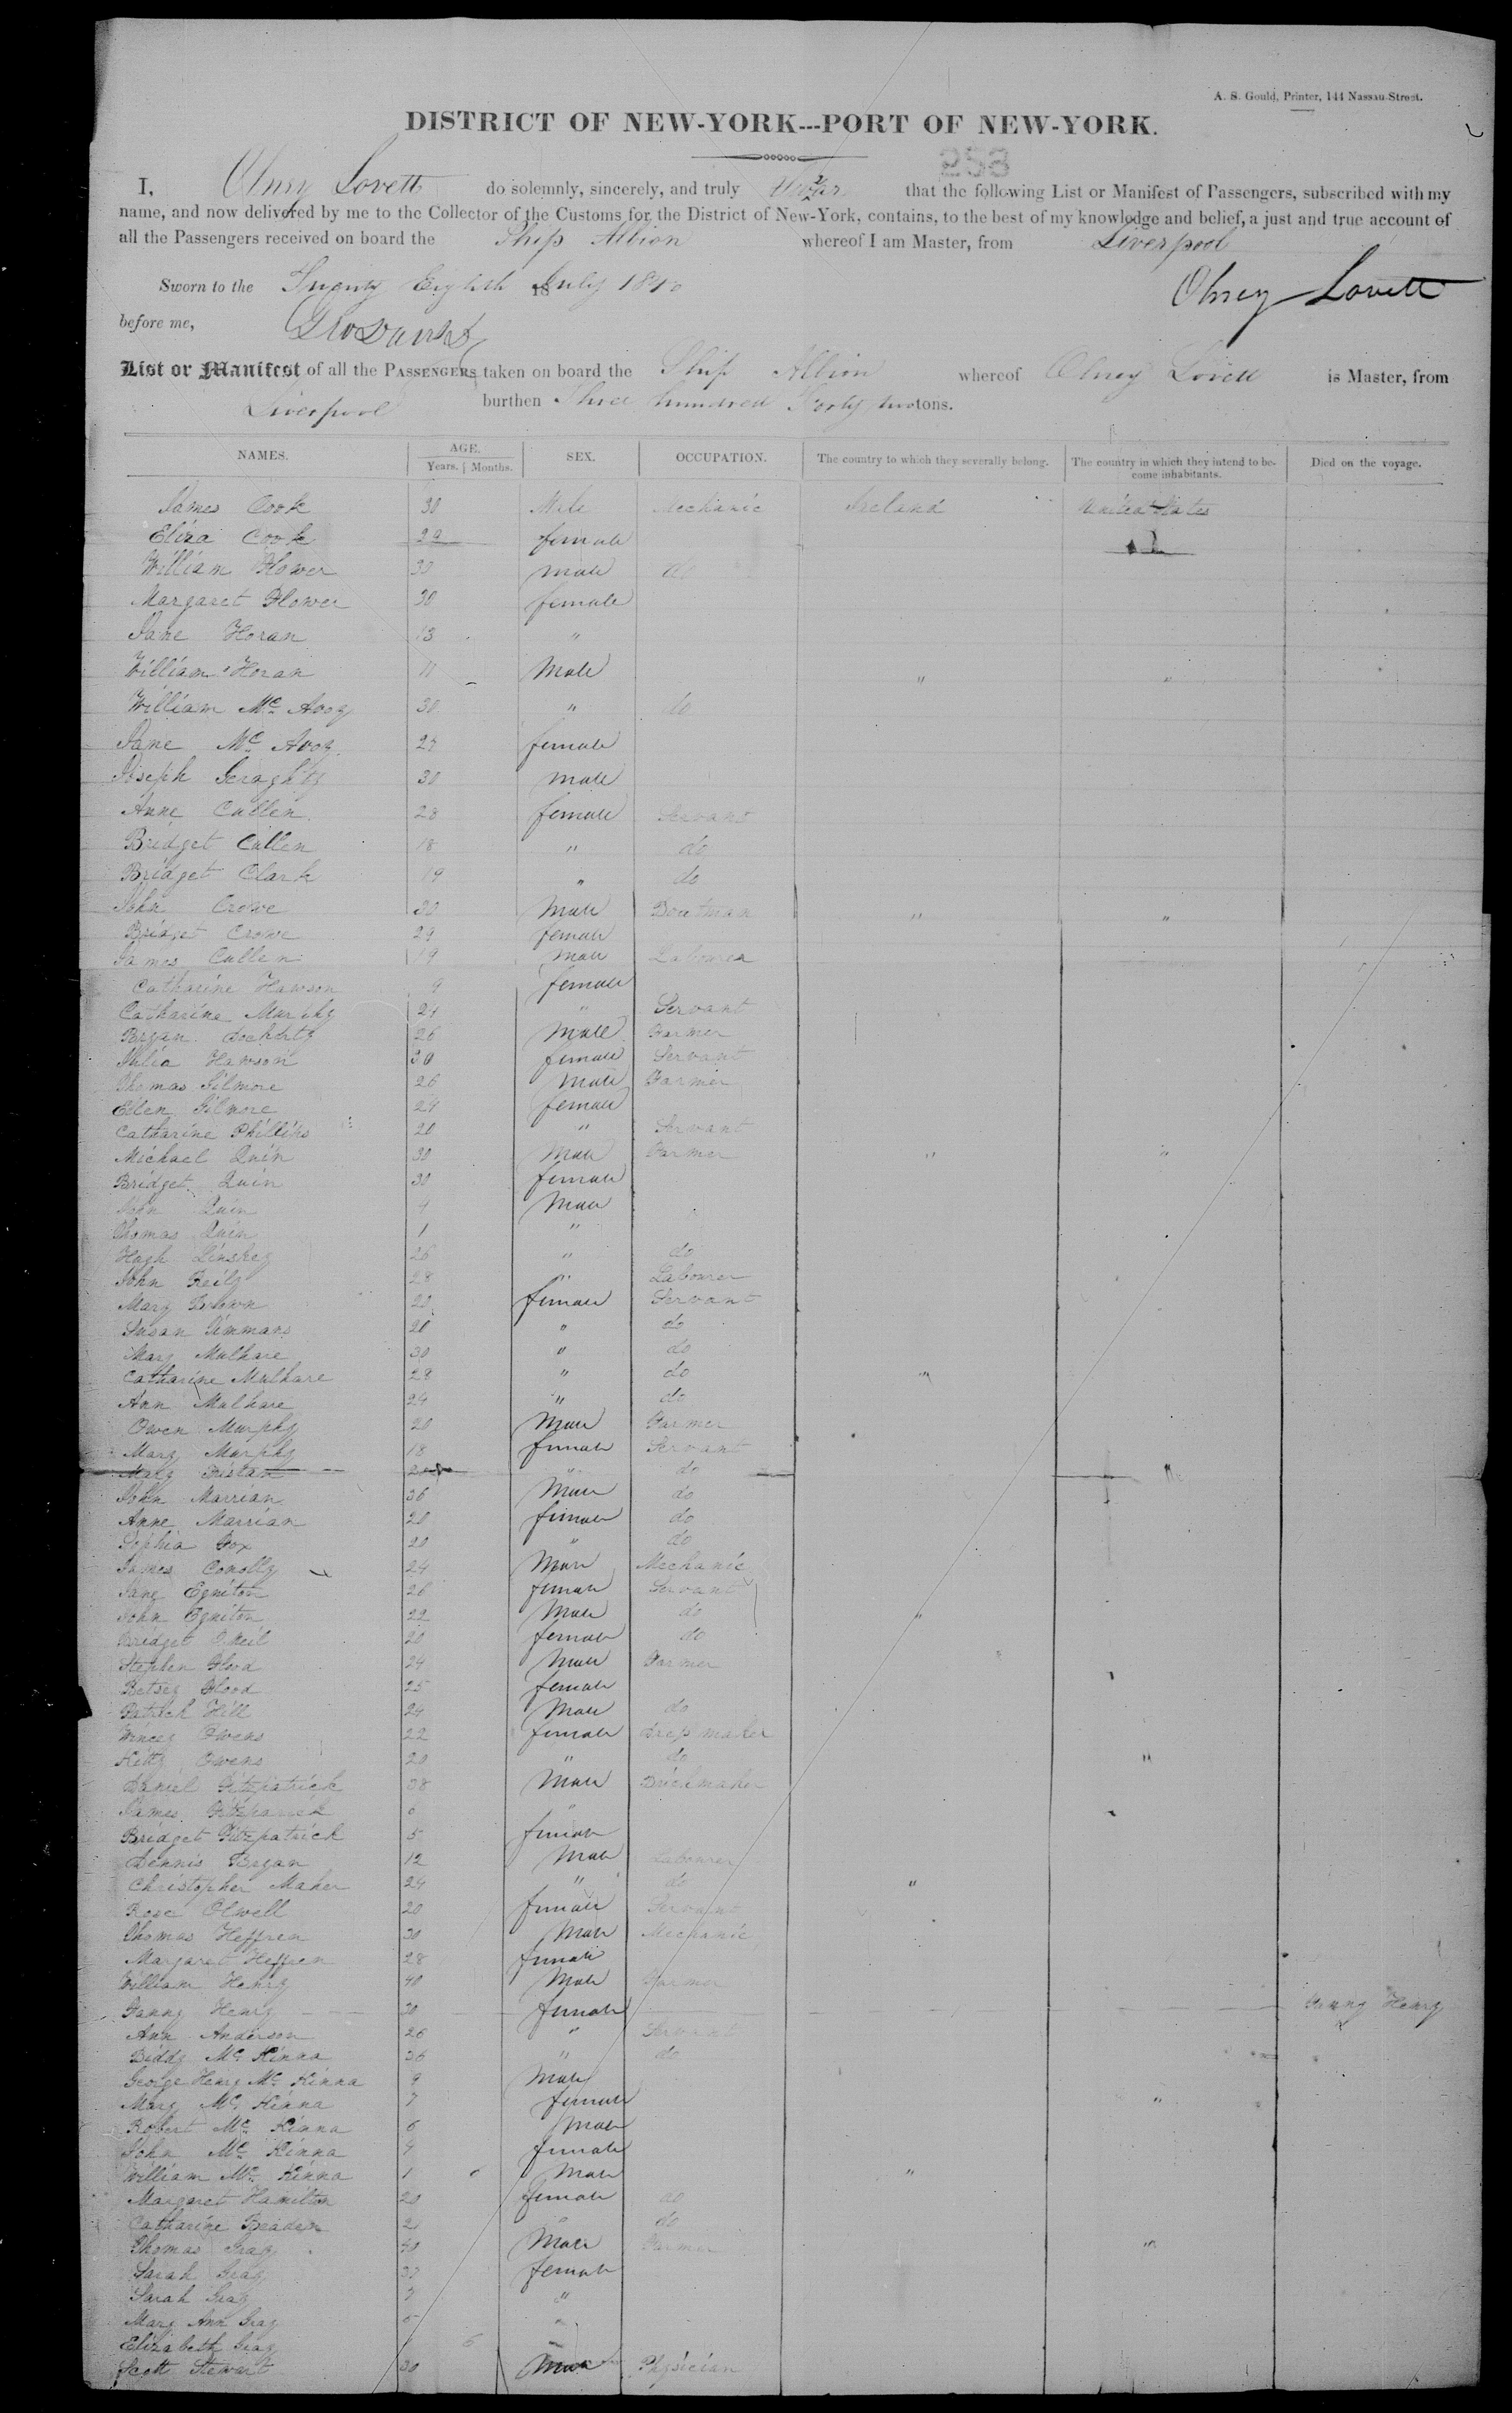 A. S. Gould, Printer, 144 Nassau-Street.
DISTRICT OF NEW-YORK---PORT OF NEW-YORK.
I, Olney Lovett do solemnly, sincerely, and truly that the following List or Manifest of Passengers, subscribed with my
name, and now delivered by me to the Collector of the Customs for the District of New-York, contains, to the best of my knowledge and belief, a just and true account of
all the Passengers received on board the Ship Albion whereof I am Master, from Liverpool
Sworn to the Twenty Eighth July 1840
Olney Lovett
before me,
List or Manifest of all the PASSENGERS taken on board the Ship Albion whereof Olney Lovett is Master, from
Liverpool burthen Three hundred Forty two tons.
NAMES. AGE. Years. Months. SEX. OCCUPATION. The country to which they severally belong. The country in which they intend to become inhabitants. Died on the voyage.
James Cook 30 Male Mechanic Ireland United States
Eliza Cook 29 female
William Flower 30 male do
Margaret Flower 30 female
Jane Horan 13 "
William Horan 11 Male " "
William Mc Avoy 30 " do
Jane Mc Avoy female
Joseph Geraghty 30 male
Anne Cullen 28 female Servant
Bridget Cullen 18 " do
Bridget Clark 19 " do
John Crowe 30 Male Boatman " "
Bridget Crowe 29 female
James Cullen 19 male Labourer
Catharine Hawson 9 female
Catharine Murphy 24 " Servant
Bryan Docherty 26 Male Farmer
Julia Hawson 30 female Servant
Thomas Gilmore 26 Male Farmer
Ellen Gilmore 24 female
Catharine Phillips 20 " Servant
Michael Quin 30 Male Farmer " "
Bridget Quin 30 female
John Quin 4 Male
Thomas Quin 1 "
Hugh Linskey 26 " do
John Reily 28 " Labourer
Mary Brown 20 female Servant
Susan Timmans 20 " do
Mary Mulhare 30 " do
Catharine Mulhare 28 " do "
Ann Mulhare 24 " do
Owen Murphy 20 Male Farmer
Mary Murphy 18 female Servant
Mary " do "
John Marrian 36 Male do
Anne Marrian 20 female do
Sophia Fox 20 " do
James Conolly 24 Male Mechanic
Jane Egniton 26 female Servant
John Egniton 22 Male do "
Bridget O.Neil 20 female do
Stephen Flood 24 Male Farmer
Betsey Flood 25 female
Patrick Hill 24 Male do
Wincey Owens 22 female Drep maker
Kitty Owens 20 " do "
Daniel Fitzpatrick 38 Male Brickmaker
James Fitzpatrick 6 "
Bridget Fitzpatrick 5 female
Dennis Bryan 12 Male Labourer
Christopher Maher 24 " do "
Rose Olwell 20 female Servant
Thomas Heffren 30 Male Mechanic
Margaret Heffren 28 female
William Henry 40 Male Farmer
Fanny Henry 30 female Fanny Henry
Ann Anderson 26 " Servant
Biddy Mc Kinna 36 " do
George Henry Mc Kinna 9 Male
Mary Mc Kinna 7 female "
Robert Mc Kinna 6 Male
John Mc Kinna 4 female
William Mc Kinna 1 6 Male "
Margaret Hamilton 20 female do
Catharine Braden 2 " do
Thomas Gray 40 Male Farmer "
Sarah Gray 30 female
Sarah Gray 7 "
Mary Ann Gray 5 "
Elizabeth Gray 6
Scott Stewart 30 Male Physician